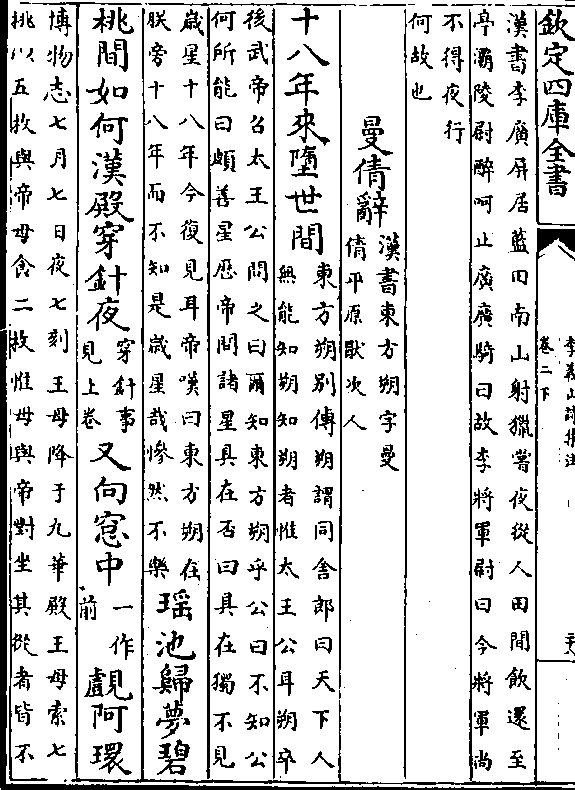 欽定四庫全書
李義山詩集注
卷二下
漢書李廣屏居藍田南山射獵嘗夜從人田間飲還至
亭灞陵尉醉呵止廣廣騎曰故李將軍尉曰今將軍尚
不得夜行
何故也
曼倩辭
漢書東方朔字曼
倩平原厭次人
十八年來墮世間
東方朔别傳朔謂同舍郎曰天下人
無能知朔知朔者惟太王公耳朔卒
後武帝召太王公問之曰爾知東方朔乎公曰不知公
何所能曰頗善星厯帝問諸星具在否曰具在獨不見
嵗星十八年今復見耳帝嘆曰東方朔在
朕旁十八年而不知是嵗星哉慘然不樂
瑶池歸夢碧
桃間如何漢殿穿針夜
穿針事
見上卷
又向窓中
一作
前
覷阿環
博物志七月七日夜七刻王母降于九華殿王母索七
桃以五枚與帝母食二枚惟母與帝對坐其從者皆不